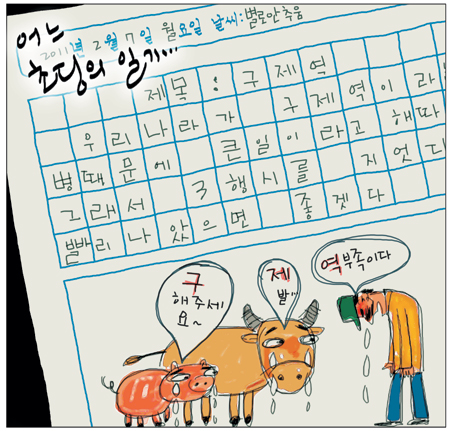 어느
초딩의 일기...
2011년 2월 7일 월요일 날씨:별로안추웅
제목 : 구제역
우리나라가 구제역이라는
병때문에 큰일이라고 해따
그래서 3행시를 지었다
빨리나았으면 좋겟다
구
해주세
요~
제
발"
역부족이다